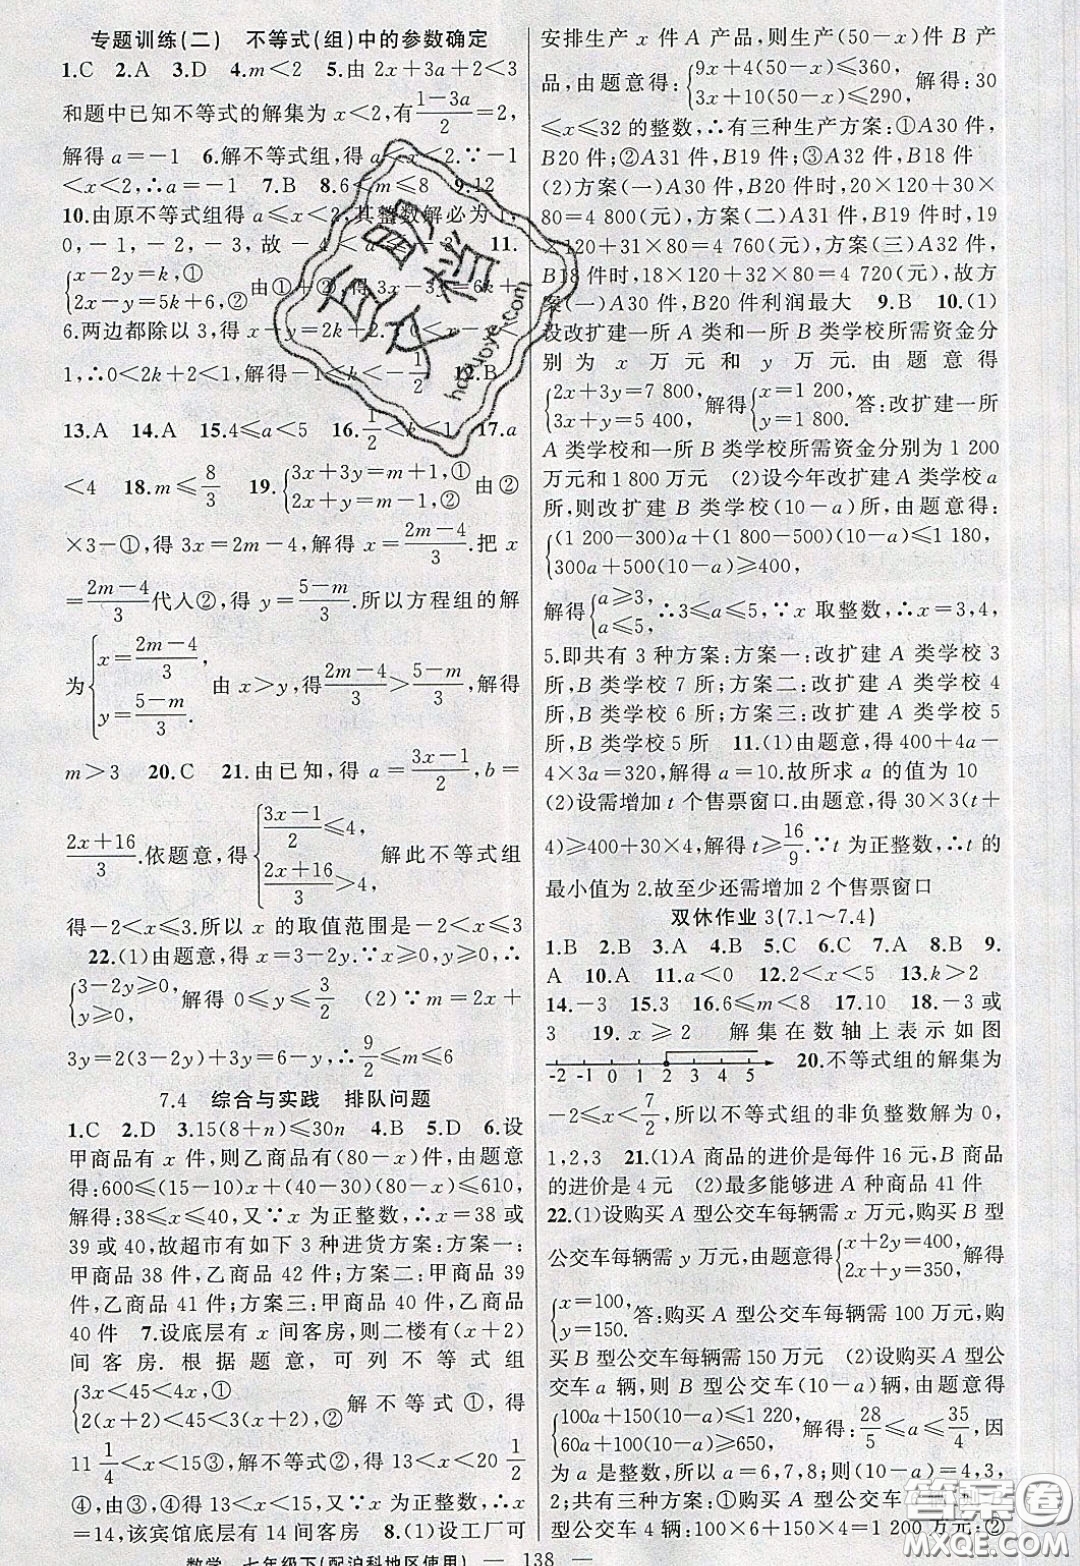 专题训练(二) 不等式(组)中的参数确定
1.C 2.A 3.D 4.m<2 5.由 2x+3a+2<3
和题中已知不等式的解集为 x<2,有(1-3a)/2=2,
解得 a=-1 6.解不等式组,得 a<x<2.∵-1
<x<2,∴a=-1 7.B 8.6<m≤8 9.12
10.由原不等式组得 a≤x<2,其整数解必为 1,
0,-1,-2,-3,故-4<a≤-3 11.
{x-2y=k,① 2x-y=5k+6,② 由①+②,得 3x-3y=6k+
6.两边都除以 3,得 x-y=2k+2.∵0<x-y<
1,∴0<2k+2<1,解得-1<k<-1/2 12.B
13.A 14.A 15.4≤a<5 16.1/2<k<1 17.a
<4 18.m≤8/3 19.{3x+3y=m+1,① 2x+y=m-1,② 由②
×3-①,得 3x=2m-4,解得 x=(2m-4)/3.把 x
=(2m-4)/3代入②,得 y=(5-m)/3.所以方程组的解
为{x=(2m-4)/3, y=(5-m)/3. 由 x>y,得(2m-4)/3>(5-m)/3,解得
m>3 20.C 21.由已知,得 a=(3x-1)/2,b=
(2x+16)/3.依题意,得{(3x-1)/2≤4, (2x+16)/3>4, 解此不等式组
得-2<x≤3.所以 x 的取值范围是-2<x≤3
22.(1)由题意,得 x=3-2y.∵x≥0,y≥0,∴
{3-2y≥0, y≥0, 解得 0≤y≤3/2 (2)∵m=2x+
3y=2(3-2y)+3y=6-y,∴9/2≤m≤6
7.4 综合与实践 排队问题
1.C 2.D 3.15(8+n)≤30n 4.B 5.D 6.设
甲商品有 x 件,则乙商品有(80-x)件,由题意
得:600≤(15-10)x+(40-30)(80-x)≤610,
解得:38≤x≤40,又∵x 为正整数,∴x=38 或
39 或 40,故超市有如下 3 种进货方案:方案一:
甲商品 38 件,乙商品 42 件;方案二:甲商品 39
件,乙商品 41 件;方案三:甲商品 40 件,乙商品
40 件 7.设底层有 x 间客房,则二楼有(x+2)
间客房.根据题意,可列不等式组
{3x<45<4x,① 2(x+2)<45<4(x+2),② 解不等式①,得
11 1/4<x<15③,解不等式②,得 13<x<20 1/2
④,由③④,得 13<x<15,又∵x 为正整数,∴x
=14,该宾馆底层有 14 间客房 8.(1)设工厂可
安排生产 x 件 A 产品,则生产(50-x)件 B 产
品,由题意得:{9x+4(50-x)≤360, 3x+10(50-x)≤290, 解得:30
≤x≤32 的整数,∴有三种生产方案:①A30 件,
B20 件;②A31 件,B19 件;③A32 件,B18 件
(2)方案(一)A30 件,B20 件时,20×120+30×
80=4 800(元),方案(二)A31 件,B19 件时,19
×120+31×80=4 760(元),方案(三)A32 件,
B18 件时,18×120+32×80=4 720(元),故方
案(一)A30 件,B20 件利润最大 9.B 10.(1)
设改扩建一所 A 类和一所 B 类学校所需资金分
别为 x 万元和 y 万元.由题意得
{2x+3y=7 800, 3x+y=5 400, 解得{x=1 200, y=1 800. 答:改扩建一所
A 类学校和一所 B 类学校所需资金分别为 1 200
万元和 1 800 万元 (2)设今年改扩建 A 类学校a
所,则改扩建 B 类学校(10-a)所,由题意得:
{(1 200-300)a+(1 800-500)(10-a)≤1 180, 300a+500(10-a)≥400,
解得{a≥3, a≤5, ∴3≤a≤5,∵x 取整数,∴x=3,4,
5.即共有 3 种方案:方案一:改扩建 A 类学校 3
所,B 类学校 7 所;方案二:改扩建 A 类学校 4
所,B 类学校 6 所;方案三:改扩建 A 类学校 5
所,B 类学校 5 所 11.(1)由题意,得 400+4a-
4×3a=320,解得 a=10.故所求 a 的值为 10
(2)设需增加 t 个售票窗口.由题意,得 30×3(t+
4)≥400+30×4,解得 t≥16/9.∵t 为正整数,∴t 的
最小值为 2.故至少还需增加 2 个售票窗口
双休作业 3(7.1～7.4)
1.B 2.B 3.A 4.B 5.C 6.A 7.A 8.B 9.
A 10.A 11.a<0 12.2<x<5 13.k>2
14.-3 15.3 16.6≤m<8 17.10 18.-3 或
3 19.x≥2 解集在数轴上表示如图
-2 -1 0 1 2 3 4 5 20.不等式组的解集为
-2≤x<7/2,所以不等式组的非负整数解为 0,
1,2,3 21.(1)A 商品的进价是每件 16 元,B 商品
的进价是 4 元 (2)最多能够进 A 种商品 41 件
22.(1)设购买 A 型公交车每辆需 x 万元,购买 B 型
公交车每辆需 y 万元,由题意得{x+2y=400, 2x+y=350, 解得
{x=100, y=150. 答:购买 A 型公交车每辆需 100 万元,购
买 B 型公交车每辆需 150 万元 (2)设购买 A 型公
交车 a 辆,则 B 型公交车(10-a)辆,由题意得
{100a+150(10-a)≤1 220, 60a+100(10-a)≥650, 解得:28/5≤a≤35/4,因
为 a 是整数,所以 a=6,7,8;则(10-a)=4,3,
2;共有三种方案:①购买 A 型公交车
型公交车 4 辆:100×6+150×4=1 200 万元;②
数学 七年级下(配沪科地区使用) — 138 —
全明文档
hazuoye.com
答案圈